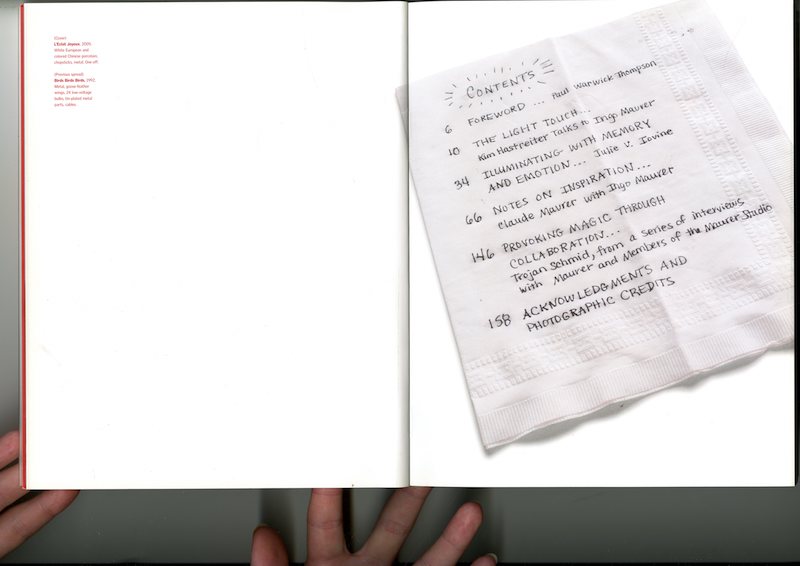 (Cover)
L'Eclat Joyeux, 2005.
White European and
colored Chinese porcelain,
chopsticks, metal. One-off.
(Previous spread)
Birds Birds Birds, 1992.
Metal, goose-feather
wings, 24 low-voltage
bulbs, tin-plated metal
parts, cables.
CONTENTS
6 FOREWORD ... Paul Warwick Thompson
10 THE LIGHT TOUCH...
Kim Hastreiter Talks to Ingo Maurer
34 ILLUMINATING WITH MEMORY
AND EMOTION... Julie V. Iovine
66 NOTES ON INSPIRATION...
Claude Maurer with Ingo Maurer
146 PROVOKING MAGIC THROUGH
COLLABORATION...
Trojan Schmid, from a series of interviews
with Maurer and Members of the Maurer Studio
158 ACKNOWLEDGMENTS AND
PHOTOGRAPHIC CREDITS